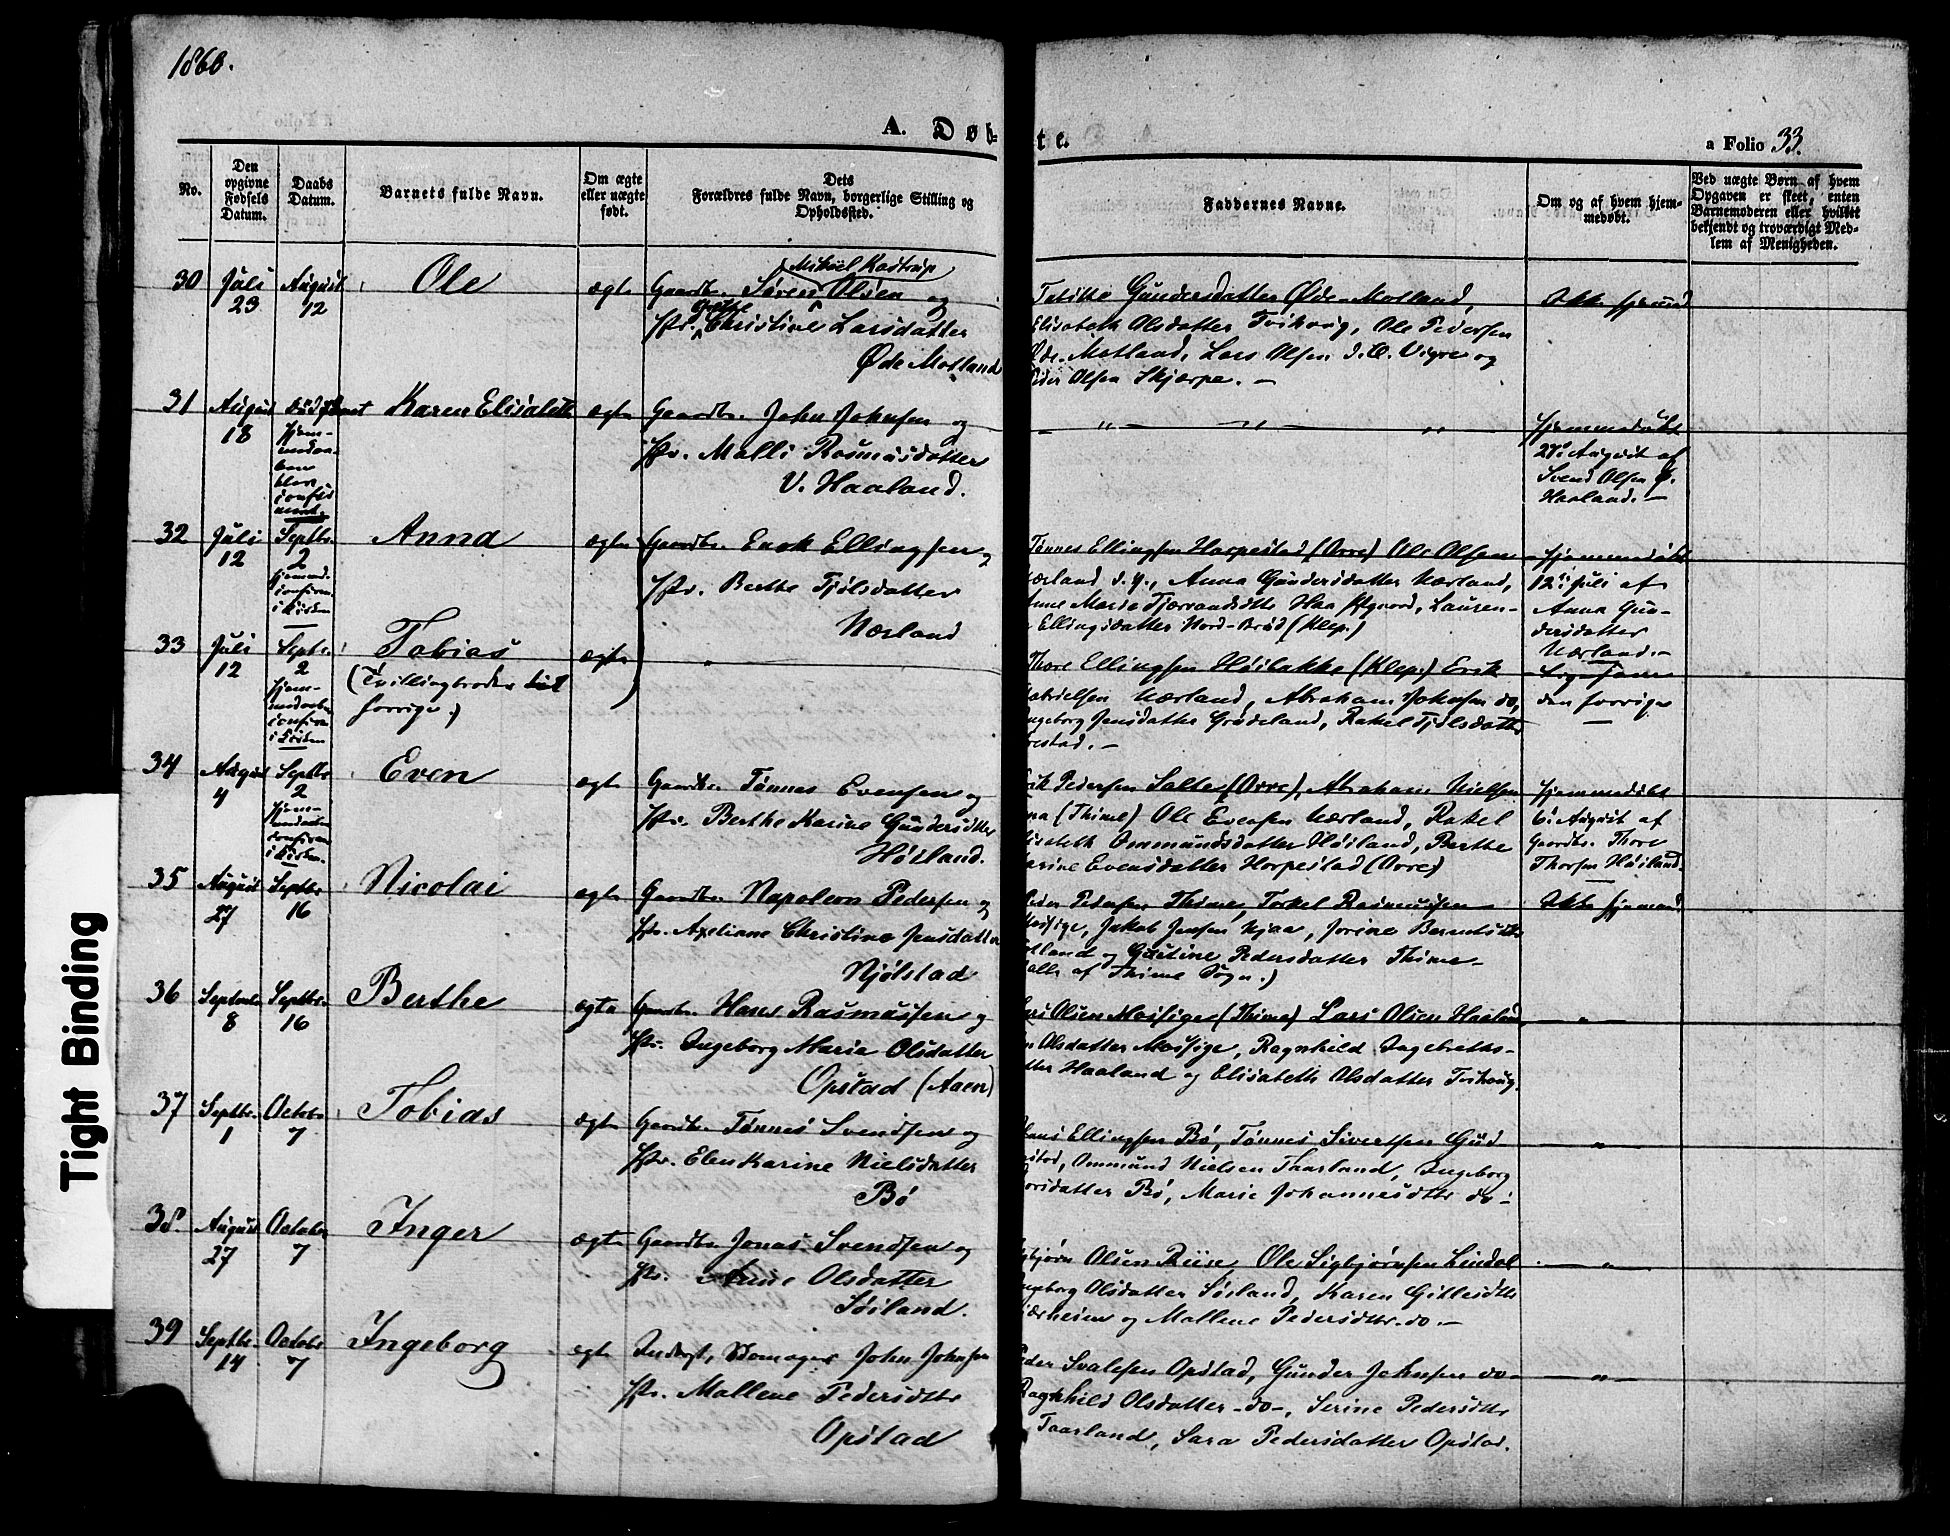 1860.
A. Døb-
te.
a Folio 33.
No.
Den opgivne Fødsels Datum.
Daabs Datum.
Barnets fulde Navn.
Om ægte eller uægte født.
Dets Forældres fulde Navn, borgerlige Stilling og Opholdssted.
Faddernes Navne.
Om og af hvem hjemmedøbt.
Ved uægte Børn af hvem Opgaven er skeet, enten Barnemoderen eller hvilket bekjendt og troværdigt Medlem af Menigheden.
30 Juli 23 August 12 Ole ægte Gaardbr. Søren Mikael Kastrup Olsen og
Hstr. Grethe Christine Larsdatter
Øde Motland
Gundersdatter Øde-Motland,
Elisabeth Olsdatter Tvihoug, Ole Pedersen
Øde-Motland, Lars Olsen Vigre og
Peder Olsen Skjærpe. —
Ikke hjemmed
31 August 18 Karen Elisabeth ægte Gaardbr. John Johnsen og
Hstr. Malli Rasmusdatter
V. Haaland.
— " — " — "
Hjemmedøbt
August af
Svend Olsen
Haaland. —
32 Juli 12 Septbr. 2 Anna ægte Gaardbr. Enok Ellingsen og
Hstr. Berthe Tjølsdatter
Nærland
Tønnes Ellingsen Horpestad (Orre) Ole Olsen
Nærland d. y., Anna Gundersdatter Nærland,
Anne Marie Haa
Ellingsdatter Nord-Brød (Klep.)
Hjemmedøbt
12. Juli af
Anna Gun-
dersdatter
Nærland. —
33 Juli 12 Septbr. 2 Tobias ægte "
(Tvillingbroder til
forrige.)
Thore Ellingsen (Klep.) Erik
Gabrielsen Nærland, Abraham Johnsen do,
Ingeborg Jensdatter Grødeland, Rakel Tjølsdatter
Ligesom
den forrige
—
34 August 4 Septbr 2 Even ægte Gaardbr. Tønnes Evensen og
Hstr. Berthe Karine Gundersdtter
Høiland.
Erik Pedersen Salte (Orre), Abraham Nielsen
(Thime) Ole Evensen Nærland, Rakel
Elisabeth Ommundsdatter Høiland, Berthe
Karine Evensdatter Horpestad (Orre)
Hjemmedøbt
6. August af
Gaardbr. Thore
Thorsen Høiland.
35 August 27 Septbr 16 Nicolai ægte Gaardbr. Napoleon Pedersen og
Hstr. Axeliane Christine Jensdatter
Njølstad
Peder Pedersen Thime, Torkel Rasmussen
Mossige, Jakob Jensen Njaa, Jorine Berentsdtr
og Gustine Pedersdatter Thime —
(alle af Thime Sogn.)
Ikke hjemmed
36 Septembr 8 Septbr. 16 Berthe ægte Gaardbr. Hans Rasmussen og
Hstr. Ingeborg Marie Olsdatter
Opstad (Aaen)
Lars Olsen Mossige (Thime) Lars Olsen Haaland,
Olsdatter Mossige, Ragnhild Ingebreths-
datter Haaland og Elisabeth Olsdatter Tvihoug.
— " —
37 Septbr. 1 Octobr 7 Tobias ægte Gaardbr. Tønnes Svendsen og
Hstr. Elen Karine Nielsdatter
Bø
Hans Ellingsen Bø, Tønnes Sivertsen Gud-
estad, Ommund Nielsen Taarland, Ingeborg
Bø, Marie Johannesdttr do.
— " —
38. August 27 October 7 Inger ægte Gaardbr. Jonas Svendsen og
Hstr. Anne Olsdatter
Søiland.
Sigbjørn Olsen Riise, Ole Sigbjørnsen Lindal
Ingeborg Olsdatter Søiland, Karen Gitlesdttr
Nærheim og Mallene Pedersdttr. do. —
— " —
39 Septbr. 14 Octobr 7 Ingeborg ægte Inderst, Skomager John Johnsen
Hstr. Mallene Pedersdttr
Opstad
Peder Svalesen Opstad, Gunder Johnsen do —
Ragnhild Olsdatter -do-, Serine Pedersdttr
Taarland, Sara Pedersdatter Opstad.
— " —
Tight Binding